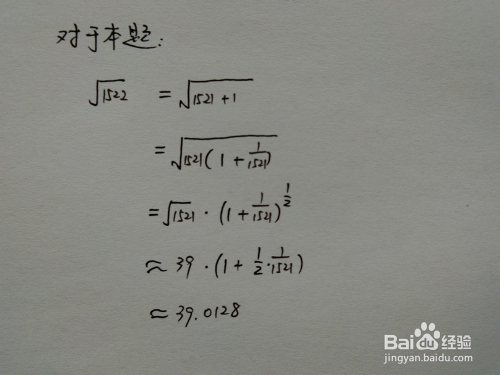 对于本题:
√1522 = √1521+1
= √1521(1+1/1521)
= √1521·(1+1/1521)^1/2
≈ 39·(1+1/2·1/1521)
≈ 39.0128
Baidu经验
jingyan.baidu.com